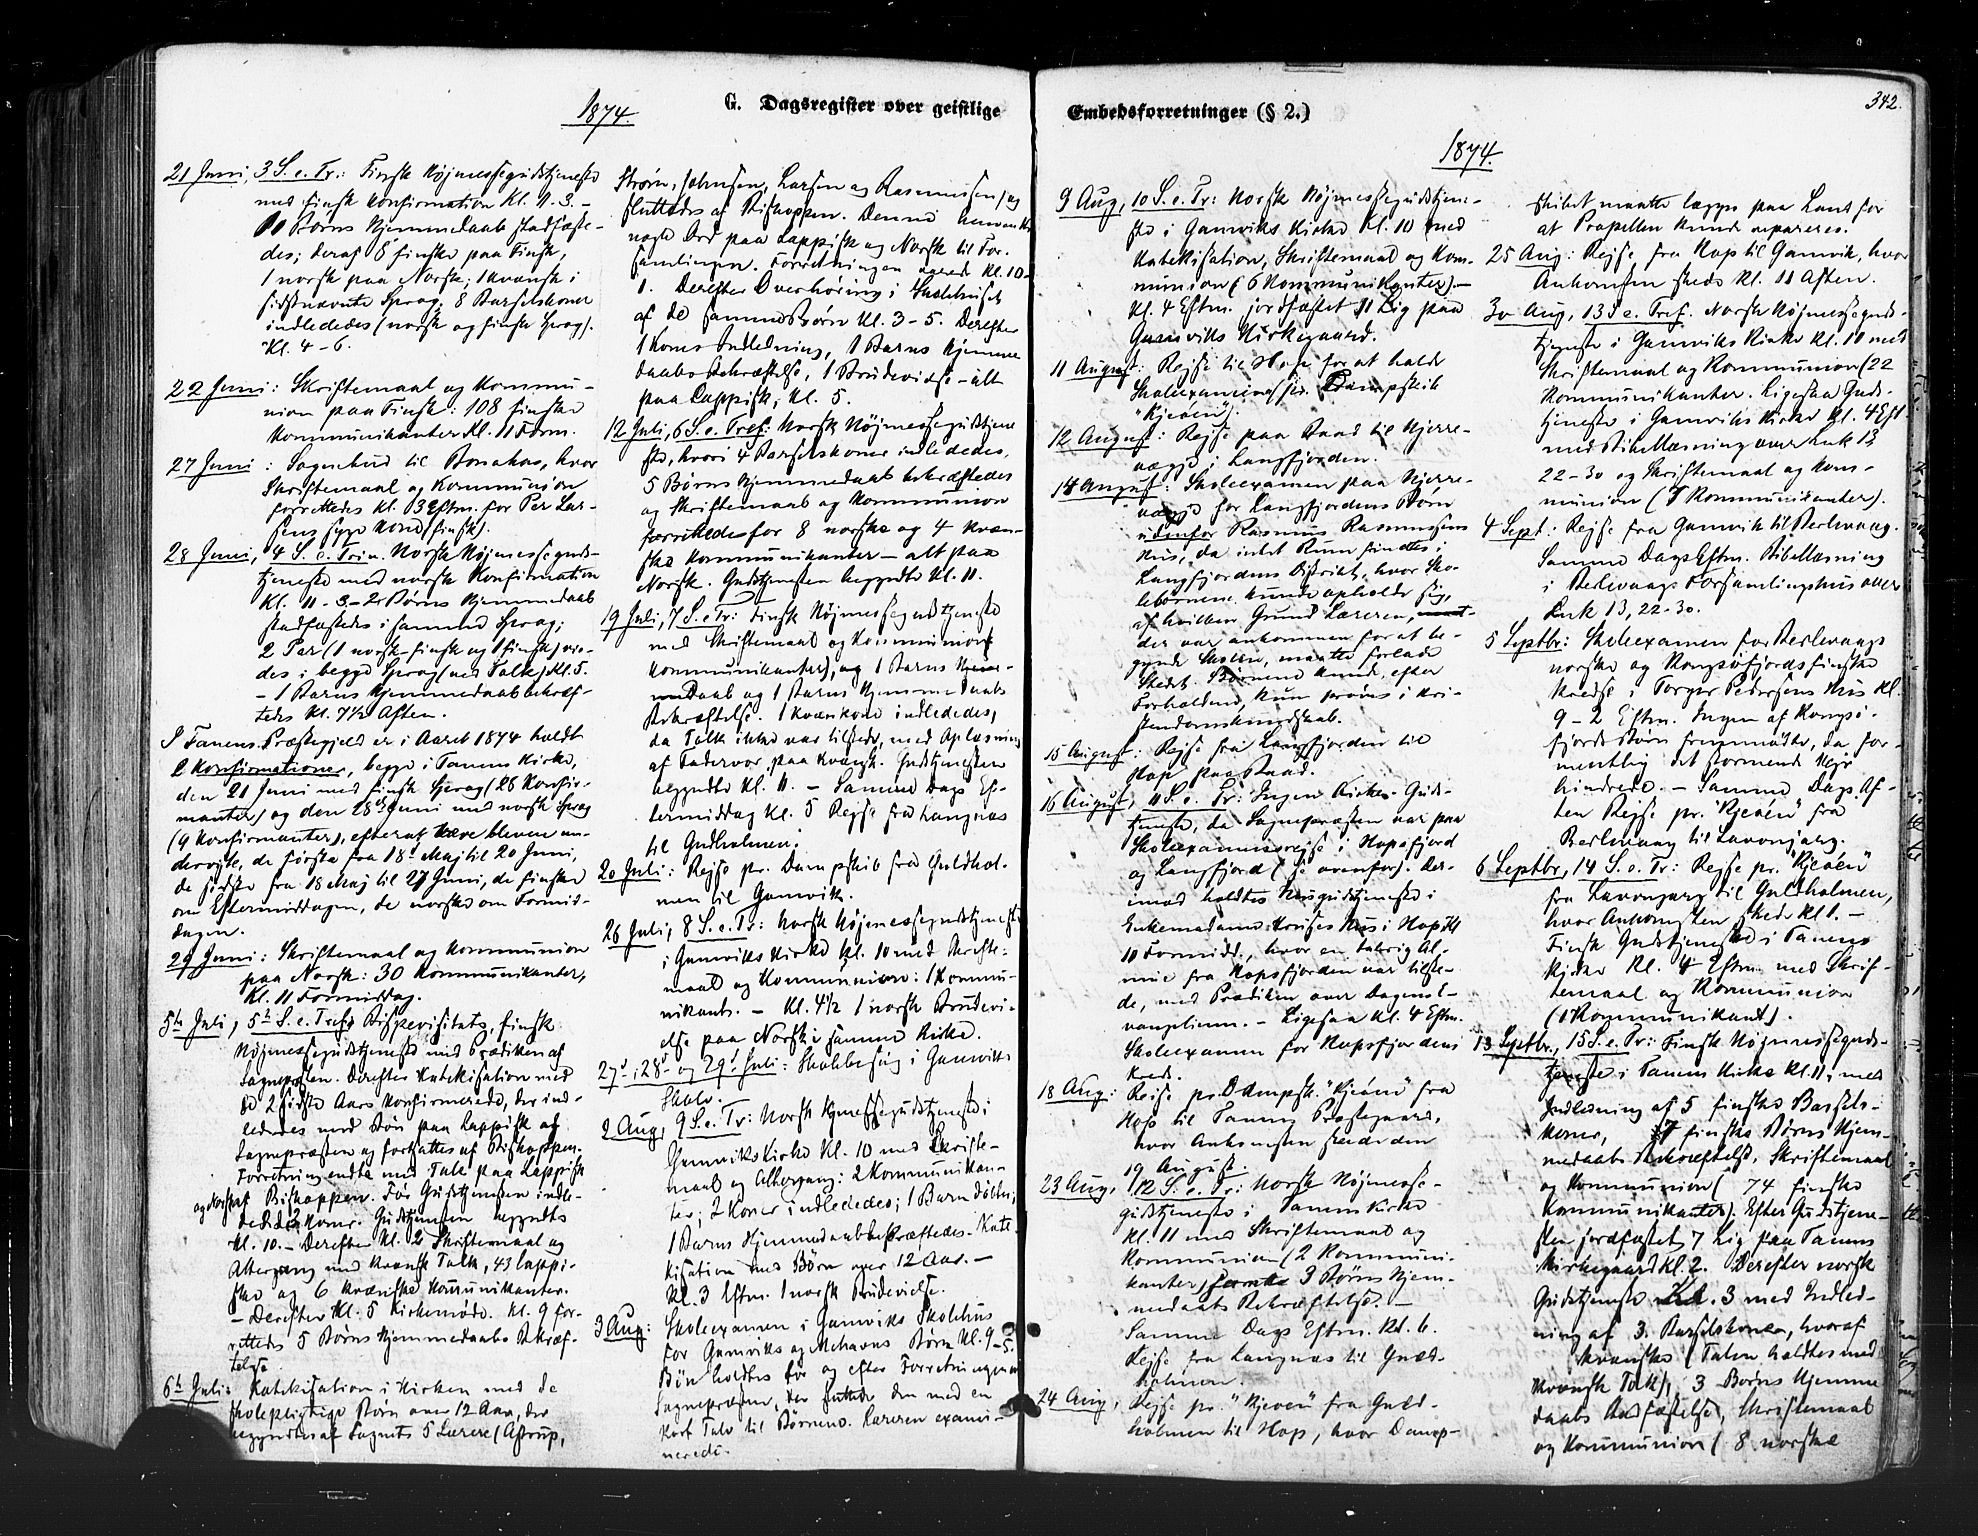 G. Dagsregister over geistlige
1874.
21 Juni, 3 S. e. Tr.: Finsk Højmessegudstjeneste
med finsk Konfirmation Kl. 11-3.-
10 Børns Hjemmedaab stadfæste-
des; deraf 8 finske paa Finsk,
1 norsk paa Norsk; 1 kvænsk i
sidstnævnte Sprog; 8 Barselskoner
indlededes (norsk og finsk Sprog).
Kl. 4-6.
22 Juni: Skriftemaal og Kommu-
nion paa Finsk: 108 finske
Kommunikanter Kl. 11 Form.
27 Juni: Sognebud til Bonakas, hvor
Skriftemaal og Kommunion
forrettedes Kl. 3 Eftm. for Per Lar-
sens syge Kone (finsk).
28 Juni, 4 S. e. Trin. Norsk Højmessegud-
tjeneste med norsk Konfirmation
Kl. 11-3.- 2 Børns Hjemmedaab
stadfæstedes i samme Sprog;
2 Par (1 norsk-finsk og 1 finsk) vie-
des i begge Sprog (ved Tolk) Kl. 5.
- 1 Barns Hjemmedaab bekræf-
tedes Kl. 7½ Aften.
I Tanens Præstegjeld er i Aaret 1874 holdt
2 Konfirmationer, begge i Tanens Kirke,
den 21 Juni med finsk Sprog (26 Konfir-
manter) og den 28de Juni med norsk Sprog
(9 Konfirmanter), efterat være bleven un-
dervist, de første fra 18 Maj til 20 Juni,
de sidste fra 18 Maj til 27 Juni, de finske
om Eftermiddagen, de norske om Formid-
dagen.
29 Juni: Skriftemaal og Kommunion
paa Norsk: 30 Kommunikanter,
Kl. 11 Formiddag.
5te Juli, 5te S. e. Tref. Bispevisitats, finsk
Højmessegudstjeneste med Prædiken af
Sognepræsten. Derefter Katekisation med
de 2 sidste Aars Konfirmerede, der ind-
lededes med Bøn paa Lappisk af
Sognepræsten og fortsattes af Biskoppen.
Forretning endte med Tale paa Lappisk
og Norsk af Biskoppen. Før Gudstjenesten indle-
dedes 2 Koner. Gudstjenesten begyndte
Kl. 10.- Derefter Kl. 2 Skriftemaal og
Altergang med kvænsk Tolk, 43 lappi-
ske og 6 kvænske Kommunikanter.
- Derefter Kl. 5 Kirkemøde. Kl. 9 for-
rettedes 5 Børns Hjemmedaabs Bekræf-
telse.
6te Juli: Katekisation i Kirken med de
skolepligtige Børn over 12 Aar, der
begyndtes af Sognets 5 Lærere (Astrup,
Strøm, Johnsen, Larsen og Rasmussen) og
sluttedes af Biskoppen. Denne
nogle Ord paa Lappisk og Norsk til For-
samlingen. Forretningen varede Kl. 10-
1. Derefter Overhøring i Skolehuset
af de samme Børn Kl. 3-5. Derefter
1 Kones Indledning, 1 Barns Hjemme
daabs Bekræftelse, 1 Brudevielse - alt
paa Lappisk, Kl. 5.
12 Juli, 6 S. e. Tref. Norsk Højmessegudstjene
ste, hvori 4 Barselskoner indlededes,
5 Børns Hjemmedaab bekræftedes
og Skriftemaal og Kommunion
forrettedes for 8 norske og 4 kvæn-
ske Kommunikanter - alt paa
Norsk. Gudstjenesten begyndte Kl. 11.
19 Juli, 7 S. e. Tr: Finsk Højmessegudstjeneste
med Skriftemaal og Kommunion
Kommunikanter), og 1 Barns Hjem-
medaab og 1 Barns Hjemmedaabs
Bekræftelse. 1 Kvænkone indlededes,
da Tolk ikke var tilstede, med Oplæsning
af Fadervor paa Kvænsk. Gudstjenesten
begyndte Kl. 11. - Samme Dags Ef-
termiddag Kl. 5 Rejse fra Langnæs
til Guldholmen.
20 Juli: Rejse pr. Dampskib fra Guldhol-
men til Gamvik.
26 Juli, 8 S. e. Tr: Norsk Højmessegudstjeneste
i Gamviks Kirke Kl. 10 med Skrifte-
maal og Kommunion: 1 Kommu-
nikant. - Kl. 4½ 1 norsk Brudevi-
else paa Norsk i samme Kirke.
27de, 28de og 29de Juli: Skolebesøg i Gamviks
Skole.
2 Aug, 9 S. e. Tr: Norsk Højmessegudstjeneste i
Gamviks Kirke Kl. 10 med Skrifte-
maal og Altergang: 2 Kommunikan-
ter; 2 Koner indlededes; 1 Barn døbtes;
1 Barns Hjemmedaab bekræftedes. Kate-
kisation med Børn over 12 Aar. -
Kl. 3 Eftm. 1 norsk Brudevielse.
3 Aug: Skoleexamen i Gamviks Skolehus
for Gamviks og Mehavns Børn Kl. 9-5.
Bøn holdtes før og efter Forretningen
Sognepræsten, der sluttede den med en
kort Tale til Børnene. Læreren exami-
nerede.
Embedsforretninger (§ 2.)
342.
1874.
9 Aug, 10 S. e. Tr: Norsk Højmessegudstjene-
ste i Gamviks Kirke Kl. 10 med
Katekisation, Skriftemaal og Kom-
munion (6 Kommunikanter).-
Kl. 4 Eftm. jordfæstet 11 Lig paa
Gamviks Kirkegaard.
11 August: Rejse til Hop for at holde
Skoleexamina (pr. Dampskib
"Kjeøen").
12 August: Rejse paa Baad til Hjerre-
vægge i Langfjorden.
14 August: Skoleexamen paa Hjerre-
vægge for Langfjordens Børn
udenfor Rasmus Rasmussens
Hus, da intet Rum findtes i
Langfjordens Distrikt, hvor Sko-
lebørnene kunde opholde sig,
af hvilken Grund Læreren,
der var ankommen for at be-
gynde Skolen, maatte forlade
Stedet. Børnene kunde, efter
Forholdene, kun prøves i Kri-
stendomskundskab.
15 August: Rejse fra Langfjorden til
Hop paa Baad.
16 August, 11 S. e. Tr: Ingen Kirke-Guds-
tjeneste, da Sognepræsten var paa
Skoleexamensrejse i Hopsfjord
og Langfjord (se ovenfor). Der-
imod holdtes Husgudstjeneste i
Enkemadame Kruses Hus i Hop Kl
10 Formidd., hvor en talrig Al-
mue fra Hopsfjorden var tilste-
de, med Prædiken over Dagens E-
vangelium. - Ligesaa Kl. 4 Eftm.
Skoleexamen for Hopsfjordens
Kreds.
18 Aug: Rejse pr. Dampsk. "Kjeøen" fra
Hop til Tanens Præstegaard,
hvor Ankomsten skede den
19 August.
23 Aug, 12 S. e. Tr: Norsk Højmesse-
gudstjeneste i Tanens Kirke
Kl. 11 med Skriftemaal og
Kommunion (2 Kommuni-
kanter) samt 3 Børns Hjem-
medaabs Bekræftelse. -
Samme Dags Eftm. Kl. 6.
Rejse fra Langnæs til Guld-
holmen.
24 Aug, Rejse pr. "Kjeøen" fra Guld-
holmen til Hop, hvor Damp-
skibet maatte lægge paa Land for
at Propellen kunde repareres.
25 Aug: Rejse fra Hop til Gamvik, hvor
Ankomsten skede Kl. 11 Aften.
30 Aug, 13 S. e. Tref. Norsk Højmessegud-
tjeneste i Gamviks Kirke Kl. 10 med
Skriftemaal og Kommunion (22
Kommunikanter. Ligesaa Guds-
tjeneste i Gamviks Kirke Kl. 4 Eft
med Bibellæsning over Luk 13
22-30 og Skriftemaal og Kom-
munion (Kommunikanter).
4 Sept. Rejse fra Gamvik til Berlevaag.
Samme Dags Eftm. Bibellæsning
i Berlevaags Forsamlingshus over
Luk 13, 22-30.
5 Septbr: Skoleexamen for Berlevaags
norske og Kongsøfjords finske
Kredse i Torger Pedersens Hus Kl.
9-2 Eftm. Ingen af Kongsø-
fjords Børn fremmødte, da for-
mentlig det stormende Vejr
hindrede. - Samme Dags Af-
ten Rejse pr. "Kjeøen" fra
Berlevaag til Lavonjarg.
6 Septbr, 14 S. e. Tr: Rejse pr. "Kjeøen"
fra Lavonjarg til Guldholmen,
hvor Ankomsten skede Kl 1. -
Finsk Gudstjeneste i Tanens
Kirke Kl. 4 Eftm. med Skrif-
temaal og Kommunion
(1 Kommunikant).
13 Septbr., 15 S. e. Tr: Finsk Højmessegud-
tjeneste i Tanens Kirke Kl. 11, med
Indledning af 5 finske Barsels-
koner, 7 finske Børns Hjem-
medaabs Bekræftelse, Skriftemaal
og Kommunion (74 finske
Kommunikanter). Efter Gudstjene-
sten jordfæstet 7 Lig paa Tanens
Kirkegaard Kl. 2. Derefter norsk
Gudstjeneste Kl. 3 med Indled-
ning af 3 Barselskoner, hvoraf
1 kvænske (Talen holdtes med
kvænsk Tolk), 3 Børns Hjemme
daabs Stadfæstelse, Skriftemaal
og Kommunion (8 norske